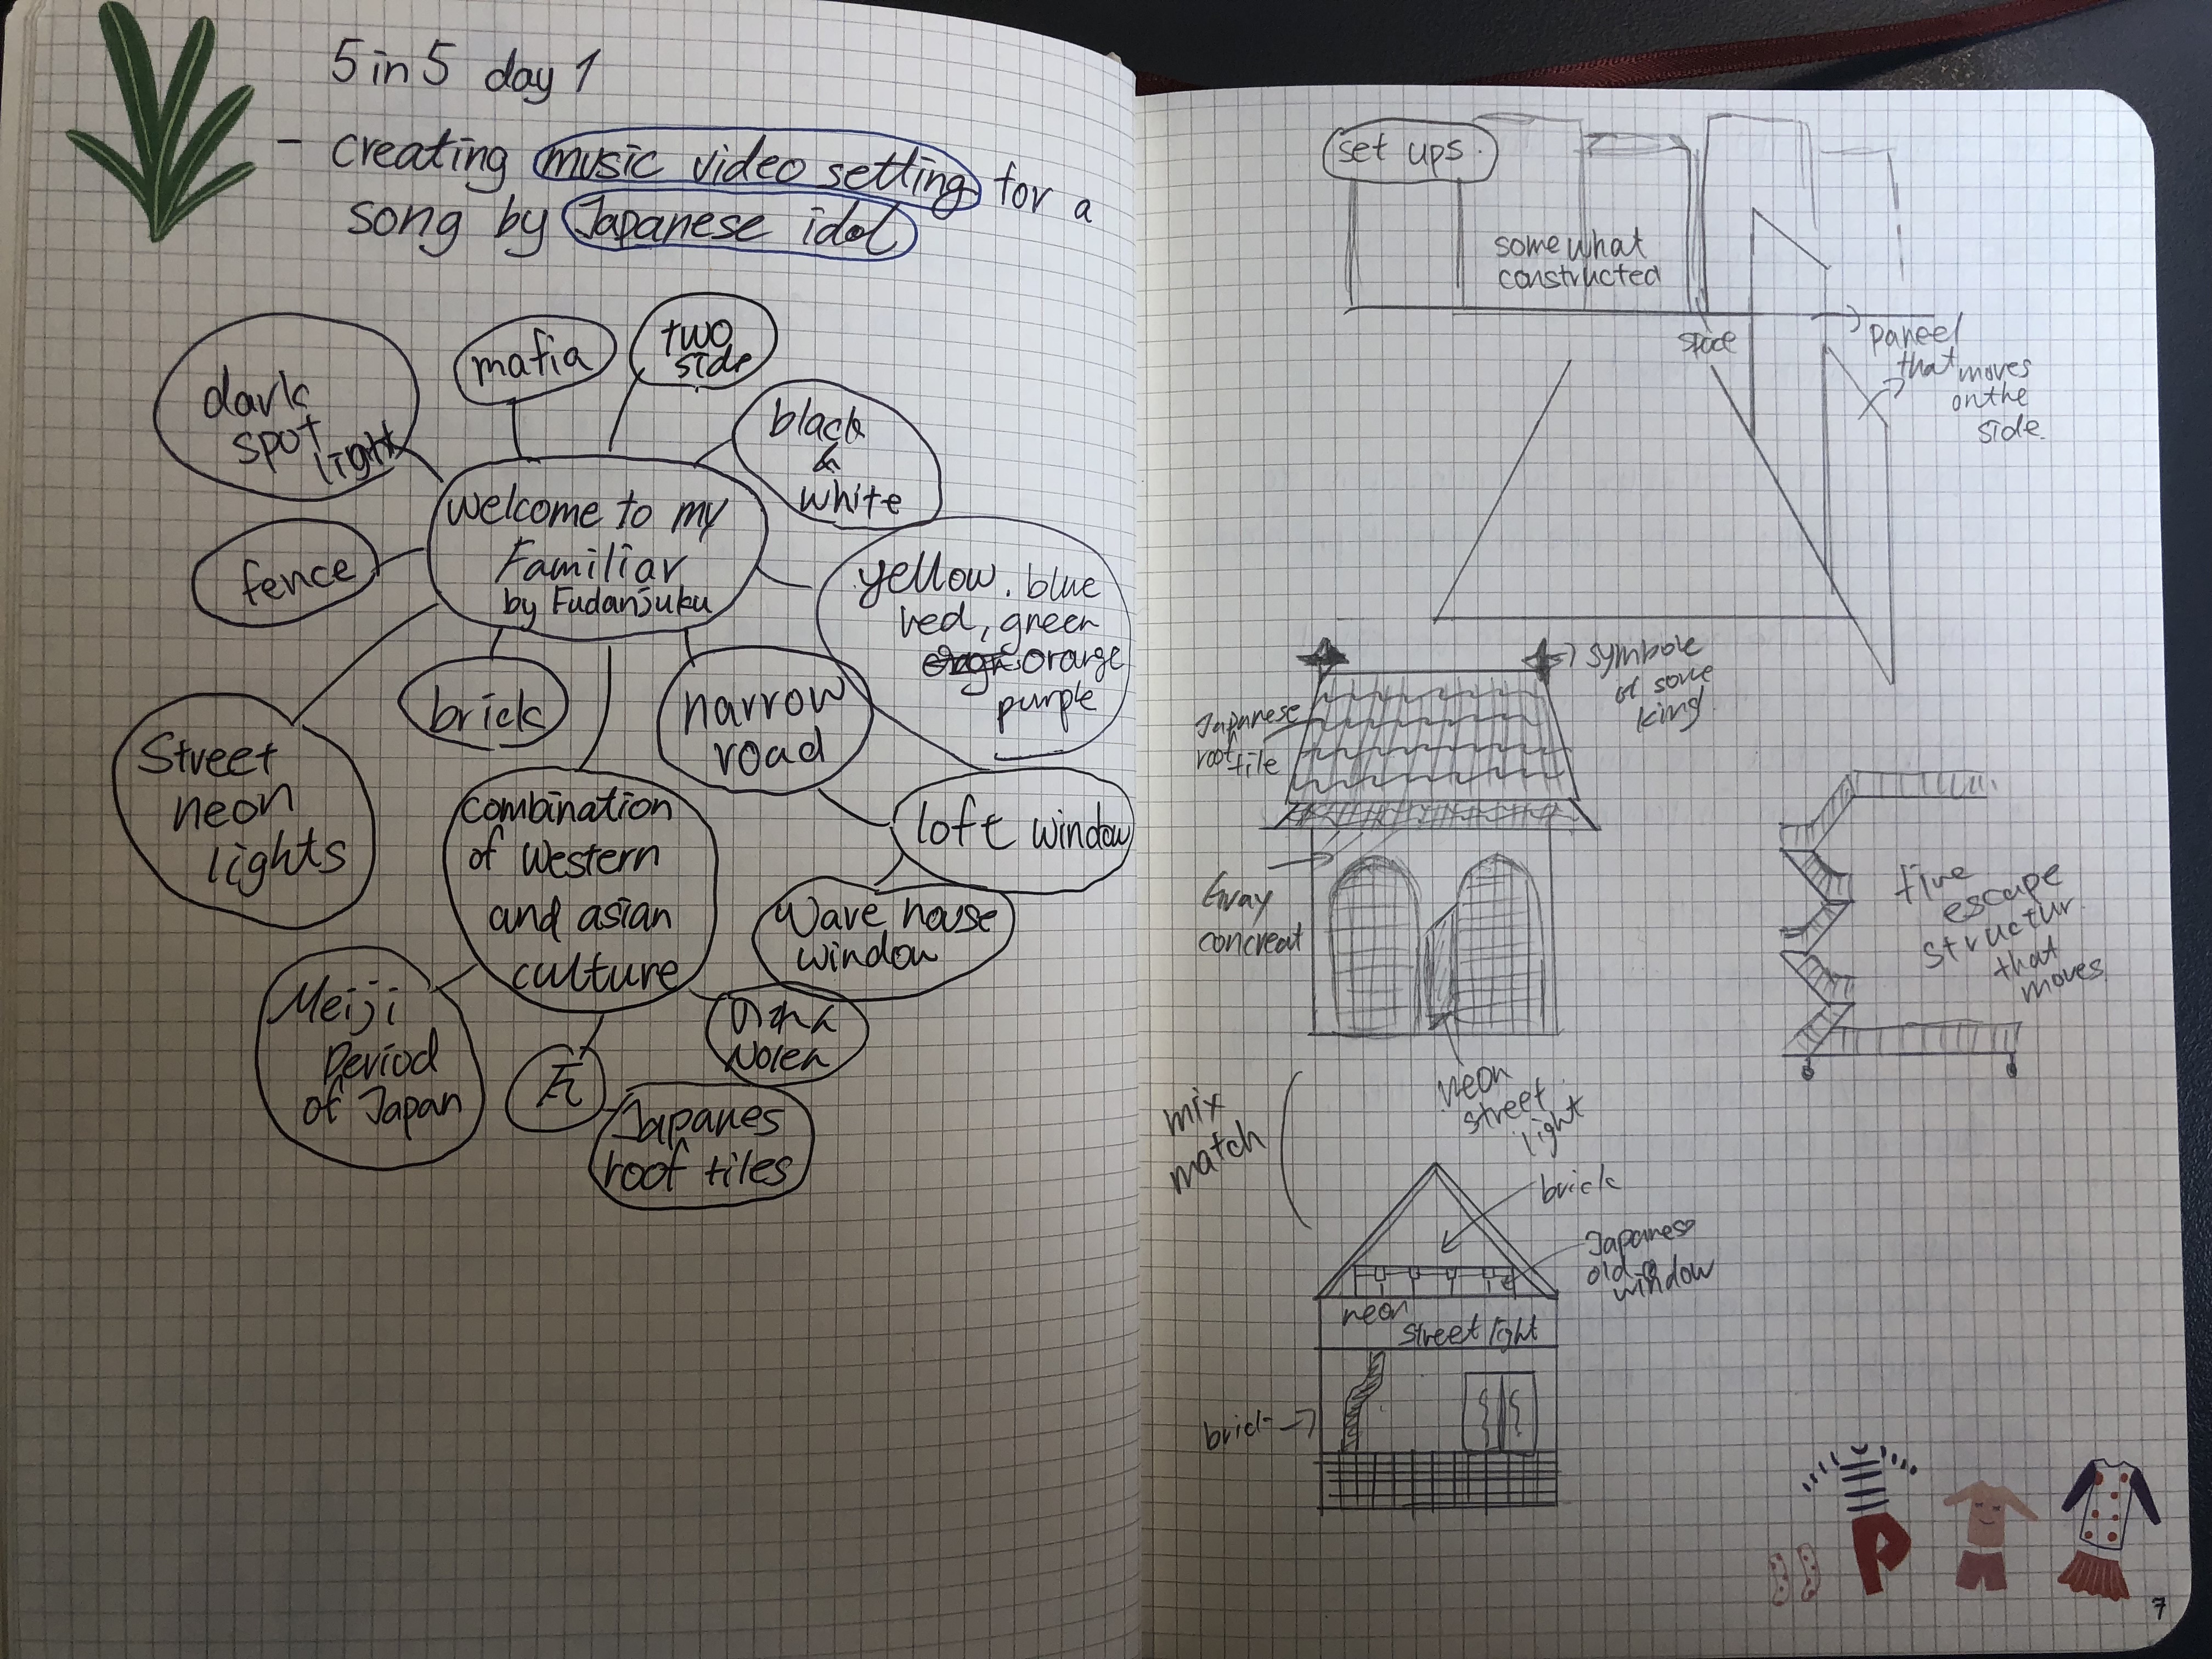 5 in 5 day 1
- creating music video setting for a
song by Japanese idol
dark
spot
light
mafia
two
side
black
&
white
welcome to my
Familiar
by Fudanjuku
fence
yellow. blue
red, green
orange
purple
brick
narrow
road
Street
neon
lights
combination
of western
and asian
culture
loft window
wave house
window
Meiji
Period
of Japan
瓦
のれん
Noren
Japanes
roof tiles
set ups.
some what
constructed
space
paneel
that moves
on the
side.
symbole
of some
king
Japanese
roof tile
Gray
concreat
neon
street
light
fire
escape
structur
that
moves
mix
match
brick
Japanese
old
window
neon
street light
brick
7